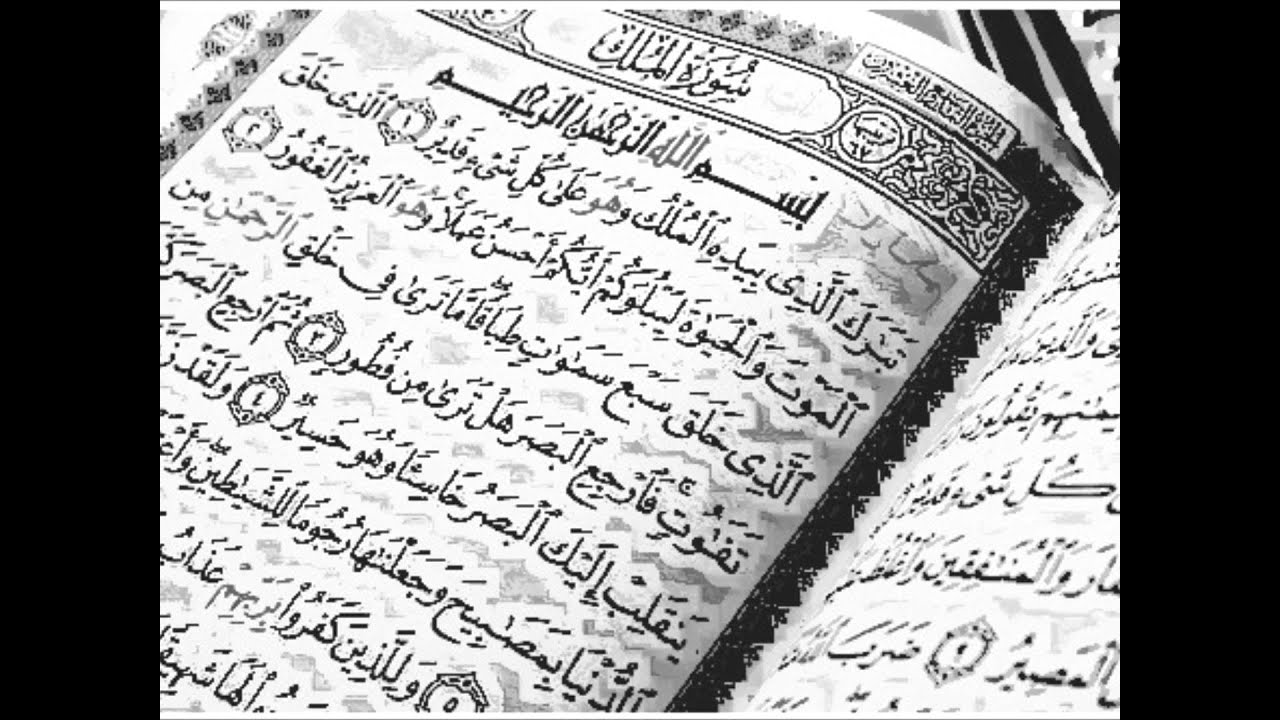 سُورَةُ الْمُلْكِ
بِسْمِ اللَّهِ الرَّحْمَٰنِ الرَّحِيمِ
تَبَٰرَكَ ٱلَّذِى بِيَدِهِ ٱلْمُلْكُ وَهُوَ عَلَىٰ كُلِّ شَىْءٍ قَدِيرٌ ١ ٱلَّذِى خَلَقَ
ٱلْمَوْتَ وَٱلْحَيَوٰةَ لِيَبْلُوَكُمْ أَيُّكُمْ أَحْسَنُ عَمَلًا وَهُوَ ٱلْعَزِيزُ ٱلْغَفُورُ ٢
ٱلَّذِى خَلَقَ سَبْعَ سَمَٰوَٰتٍ طِبَاقًا مَّا تَرَىٰ فِى خَلْقِ ٱلرَّحْمَٰنِ مِن
تَفَٰوُتٍ فَٱرْجِعِ ٱلْبَصَرَ هَلْ تَرَىٰ مِن فُطُورٍ ٣ ثُمَّ ٱرْجِعِ ٱلْبَصَرَ
يَنقَلِبْ إِلَيْكَ ٱلْبَصَرُ خَاسِئًا وَهُوَ حَسِيرٌ ٤ وَلَقَدْ
ٱلدُّنْيَا بِمَصَٰبِيحَ وَجَعَلْنَٰهَا رُجُومًا لِّلشَّيَٰطِينِ
٥ وَلِلَّذِينَ كَفَرُوا۟ بِرَبِّهِمْ عَذَابُ
لَهَا شَهِيقًا
كُلِّ شَىْءٍ قَدِيرٌ
وَٱلْمُنَٰفِقِينَ
ٱلْمَصِيرُ ٩ ضَرَبَ